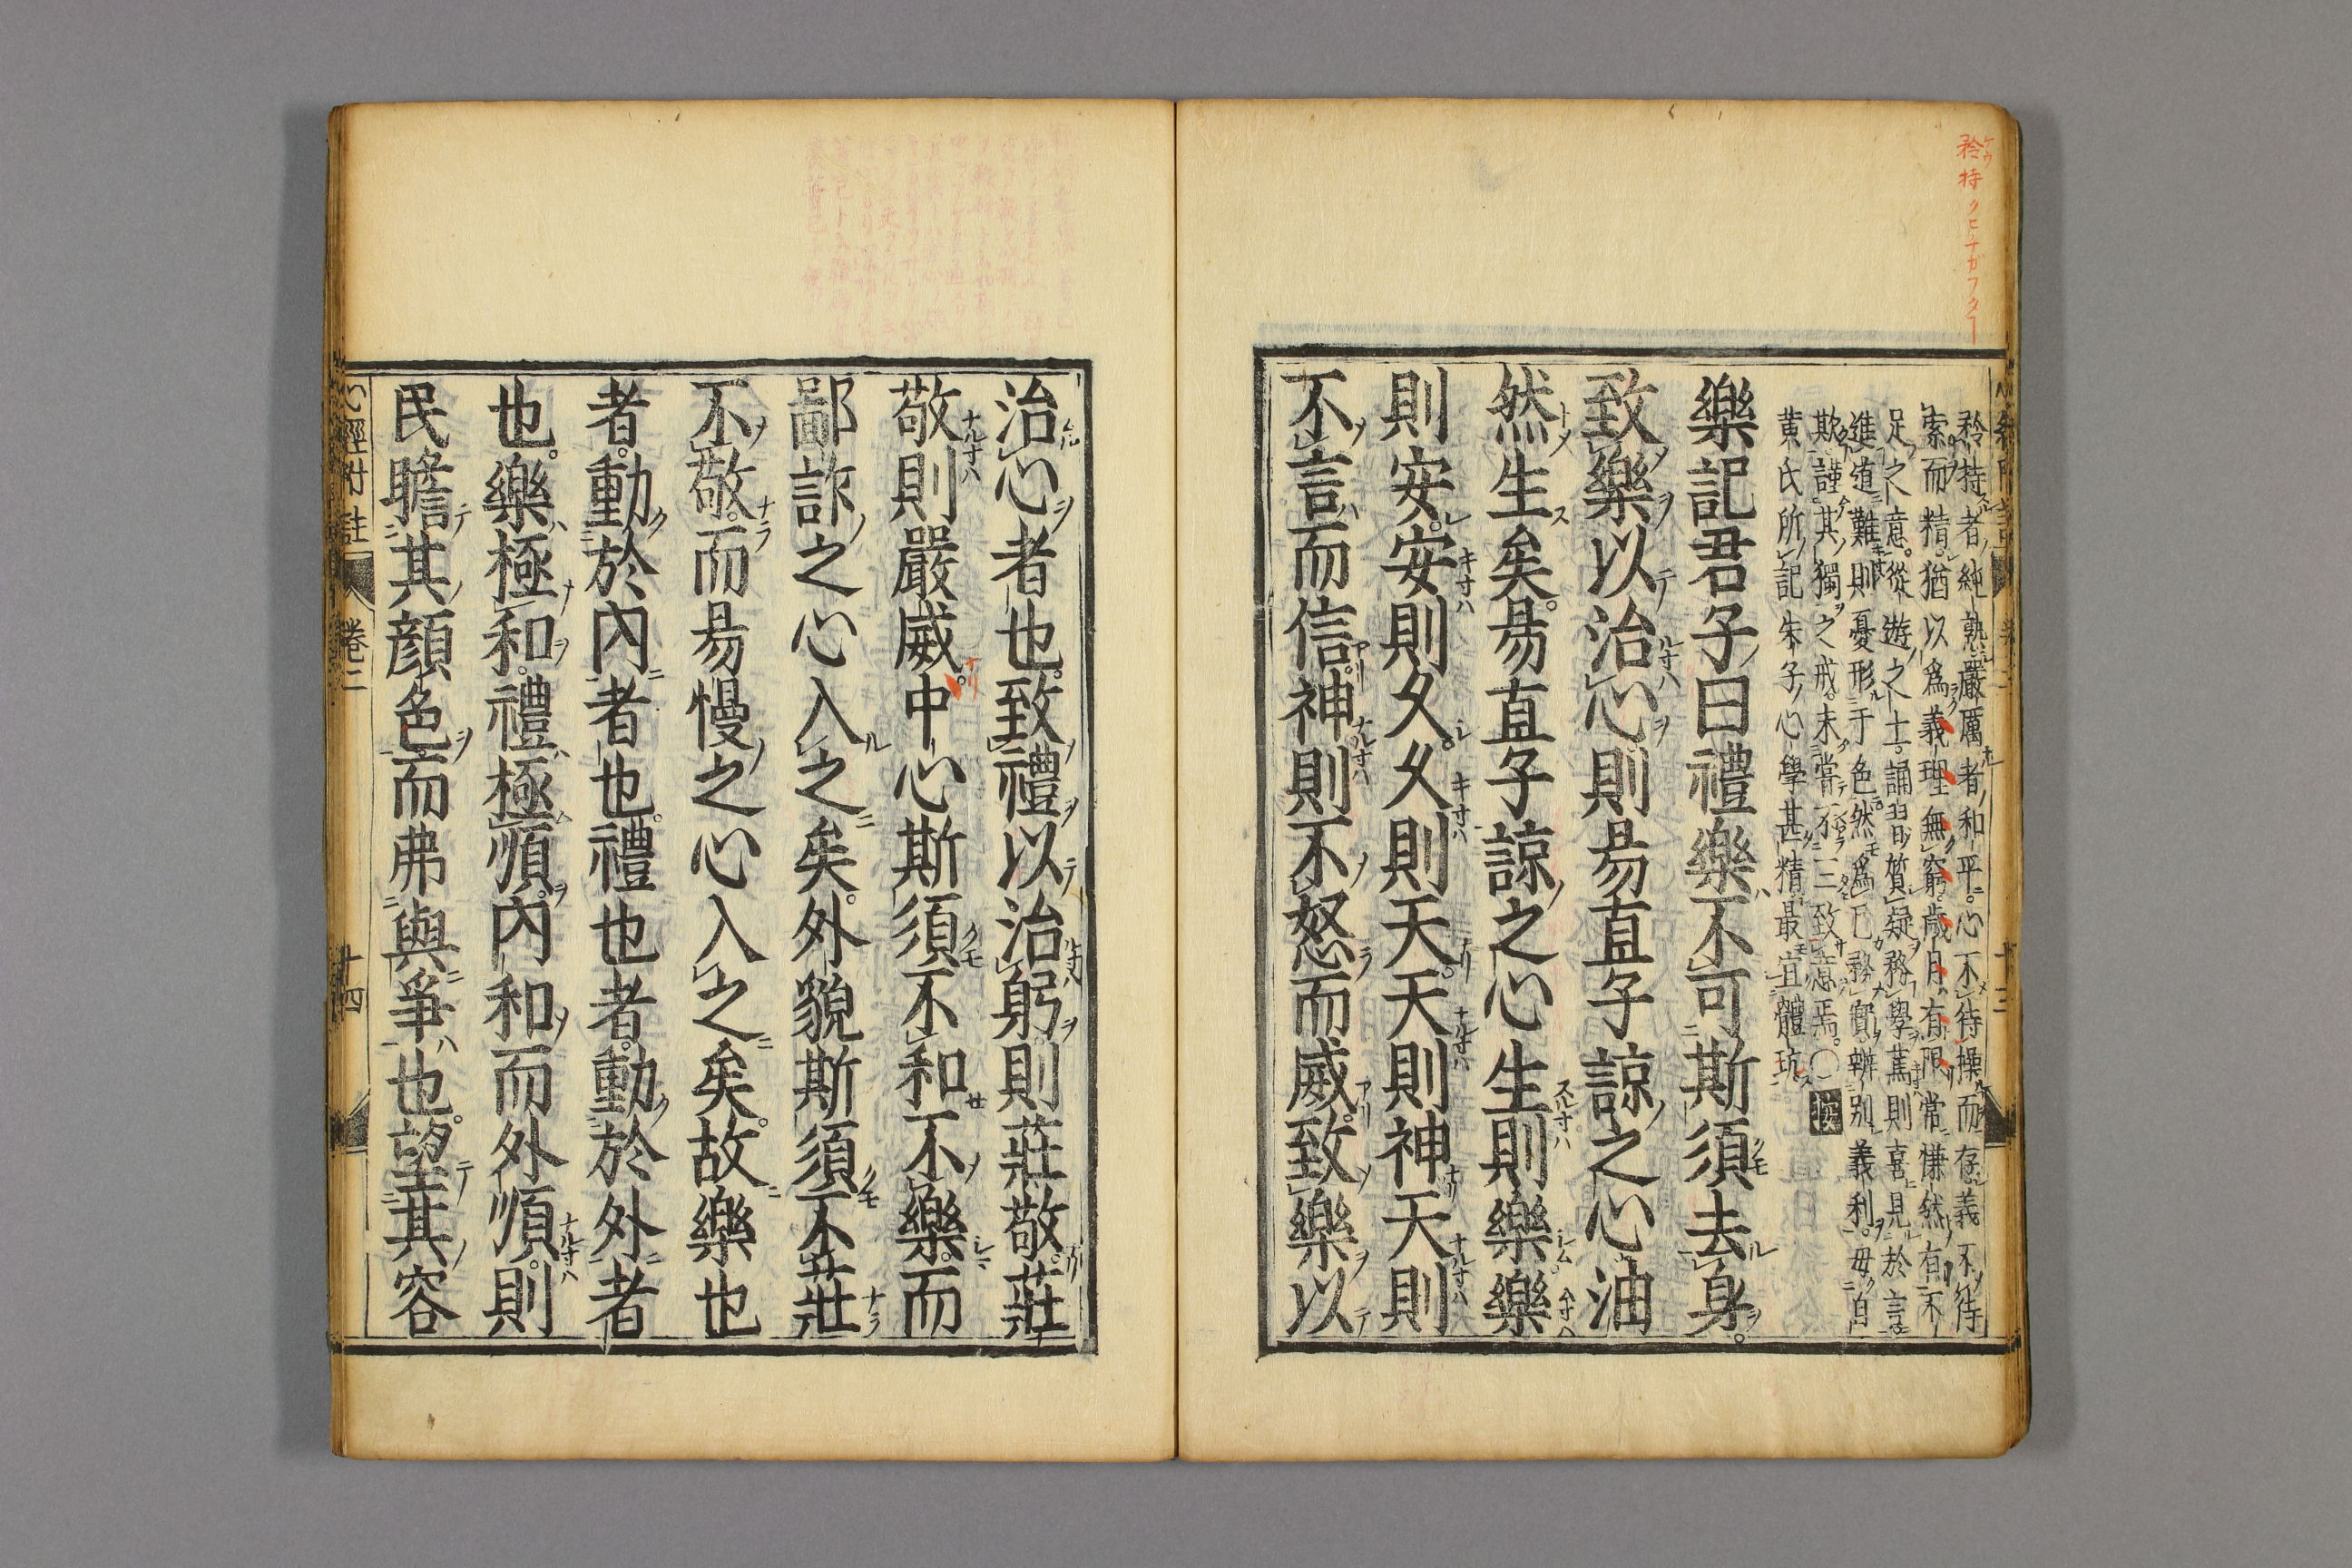 矜持
矜持者純熟嚴厲者和平心不待操而存義不待
索而精猶以爲義理無窮歲月有限常慊然有不
足之意從遊之士誦習質疑務學篤則喜見於言
進道難則憂形于色然爲己務實辨別義利毋自
欺謹其獨之戒未嘗不三致意焉〇按
黄氏所記朱子心學甚精最宜體玩
樂記君子曰禮樂不可斯須去身
致樂以治心則昜直子諒之心油
然生矣昜直子諒之心生則樂樂
則安安則久久則天天則神天則
不言而信神則不怒而威致樂以
治心者也致禮以治躬則莊敬莊
敬則嚴威中心斯須不和不樂而
鄙詐之心入之矣外貌斯須不莊
不敬而昜慢之心入之矣故樂也
者動於內者也禮也者動於外者
也樂極和禮極順內和而外順則
民瞻其顔色而弗與爭也望其容
心經附註 卷二 十四